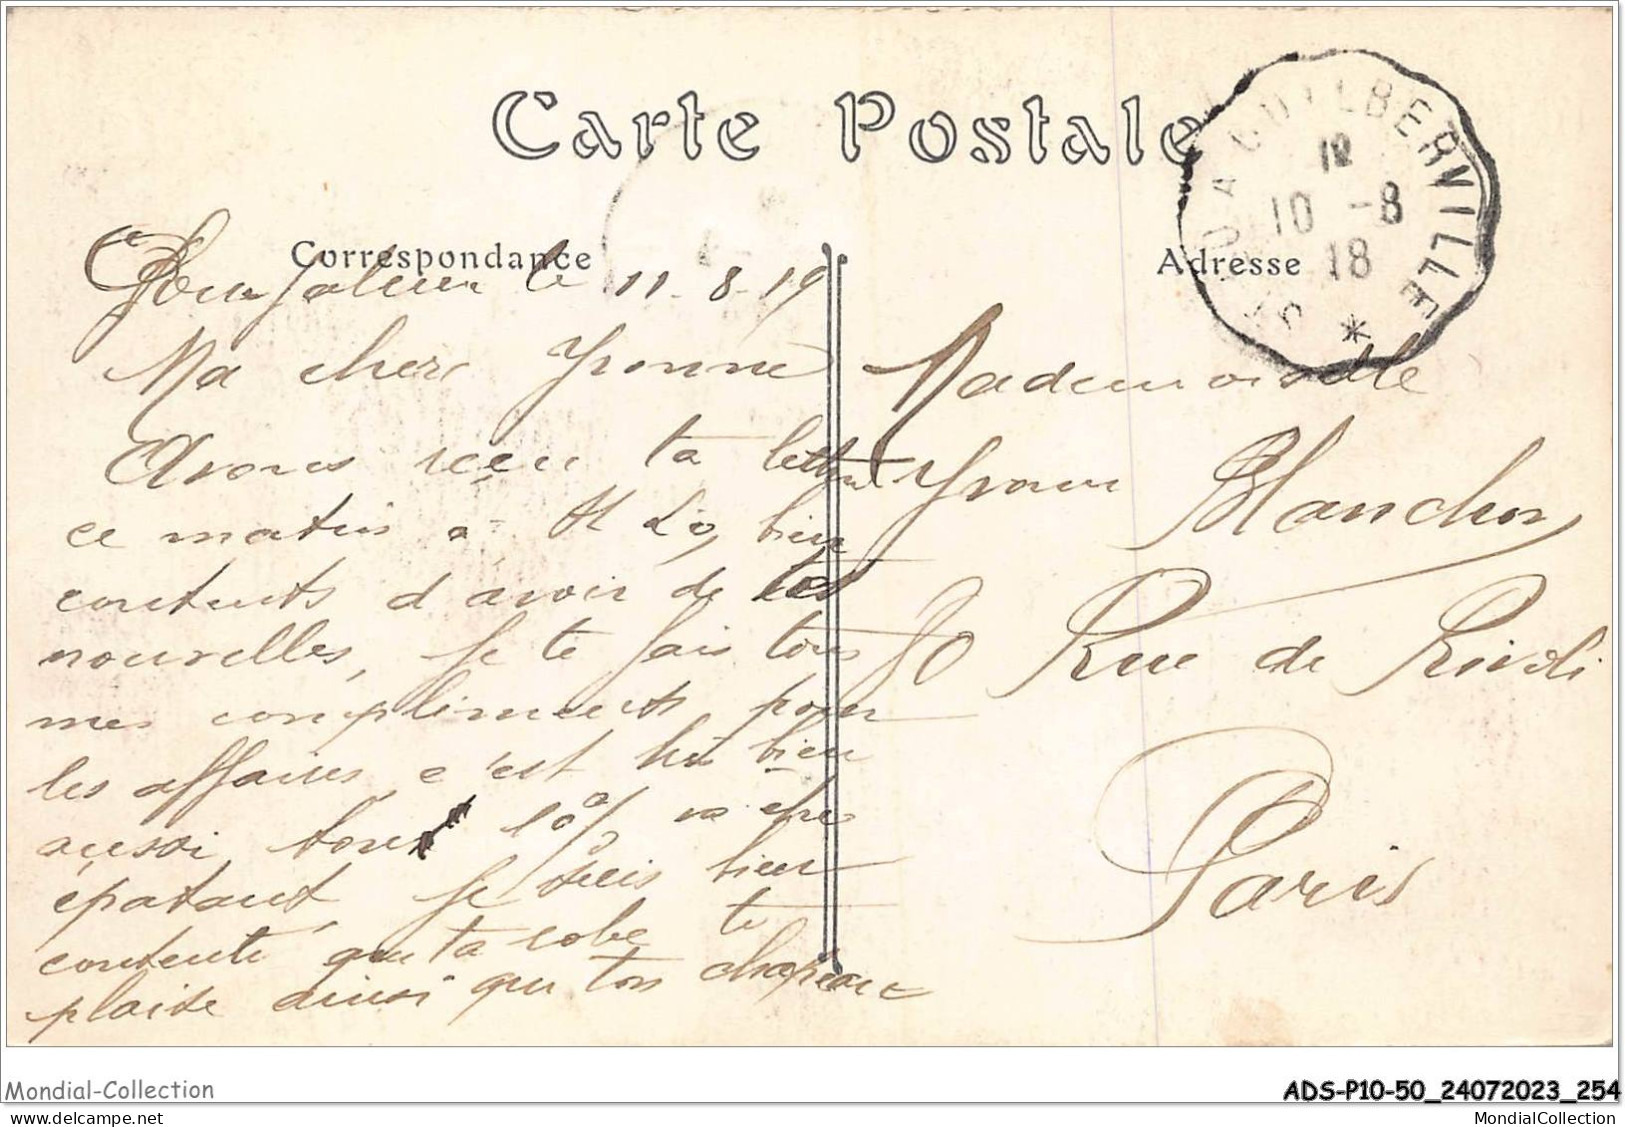 Carte Postale
Correspondance
le 11-8-19
Ma chere Yvonne
Avons reçu ta lettre
ce matin a bien
contents d avoir de tes
nouvelles, Je te fais tous
mes compliments pour
les affaires, c'est très bien
aussi 10% va être
épatant, Je suis bien
contente que ta robe te
plaise ainsi que ton chapeau
Adresse
GUILBERVILLE
10 -8
18
*
Mademoiselle
Yvonne Blanchon
80 Rue de Rivoli
Paris
Mondial-Collection
ADS-P10-50_24072023_254
MondialCollection